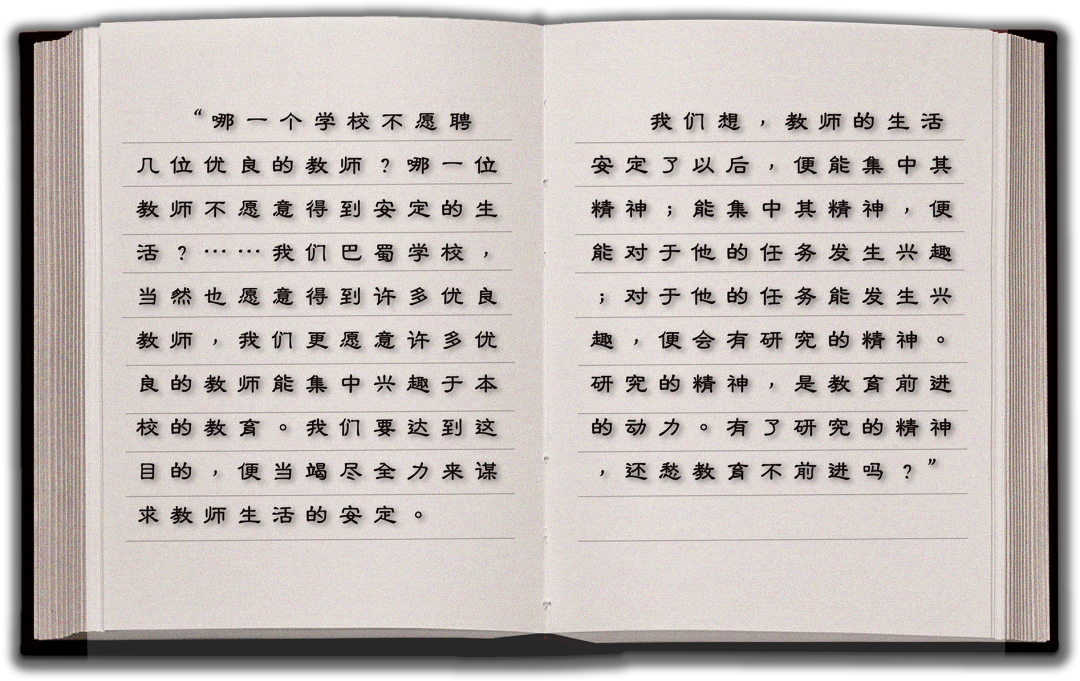 “哪一个学校不愿聘
几位优良的教师？哪一位
教师不愿意得到安定的生
活？……我们巴蜀学校，
当然也愿意得到许多优良
教师，我们更愿意许多优
良的教师能集中兴趣于本
校的教育。我们要达到这
目的，便当竭尽全力来谋
求教师生活的安定。
我们想，教师的生活
安定了以后，便能集中其
精神；能集中其精神，便
能对于他的任务发生兴趣
；对于他的任务能发生兴
趣，便会有研究的精神。
研究的精神，是教育前进
的动力。有了研究的精神
，还愁教育不前进吗？”